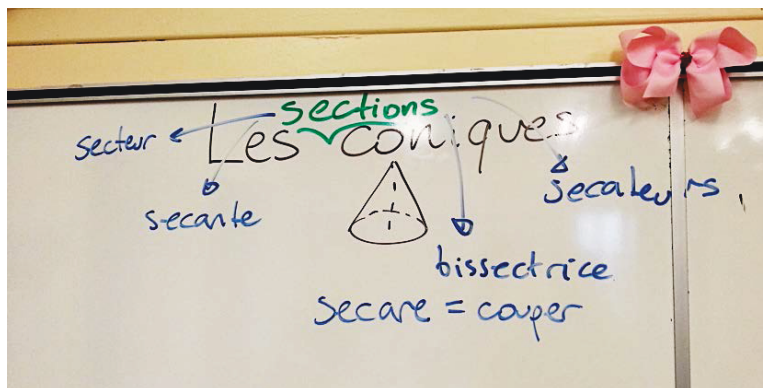 sections
Les coniques
secteur
secante
secateurs,
bissectrice
secare = couper